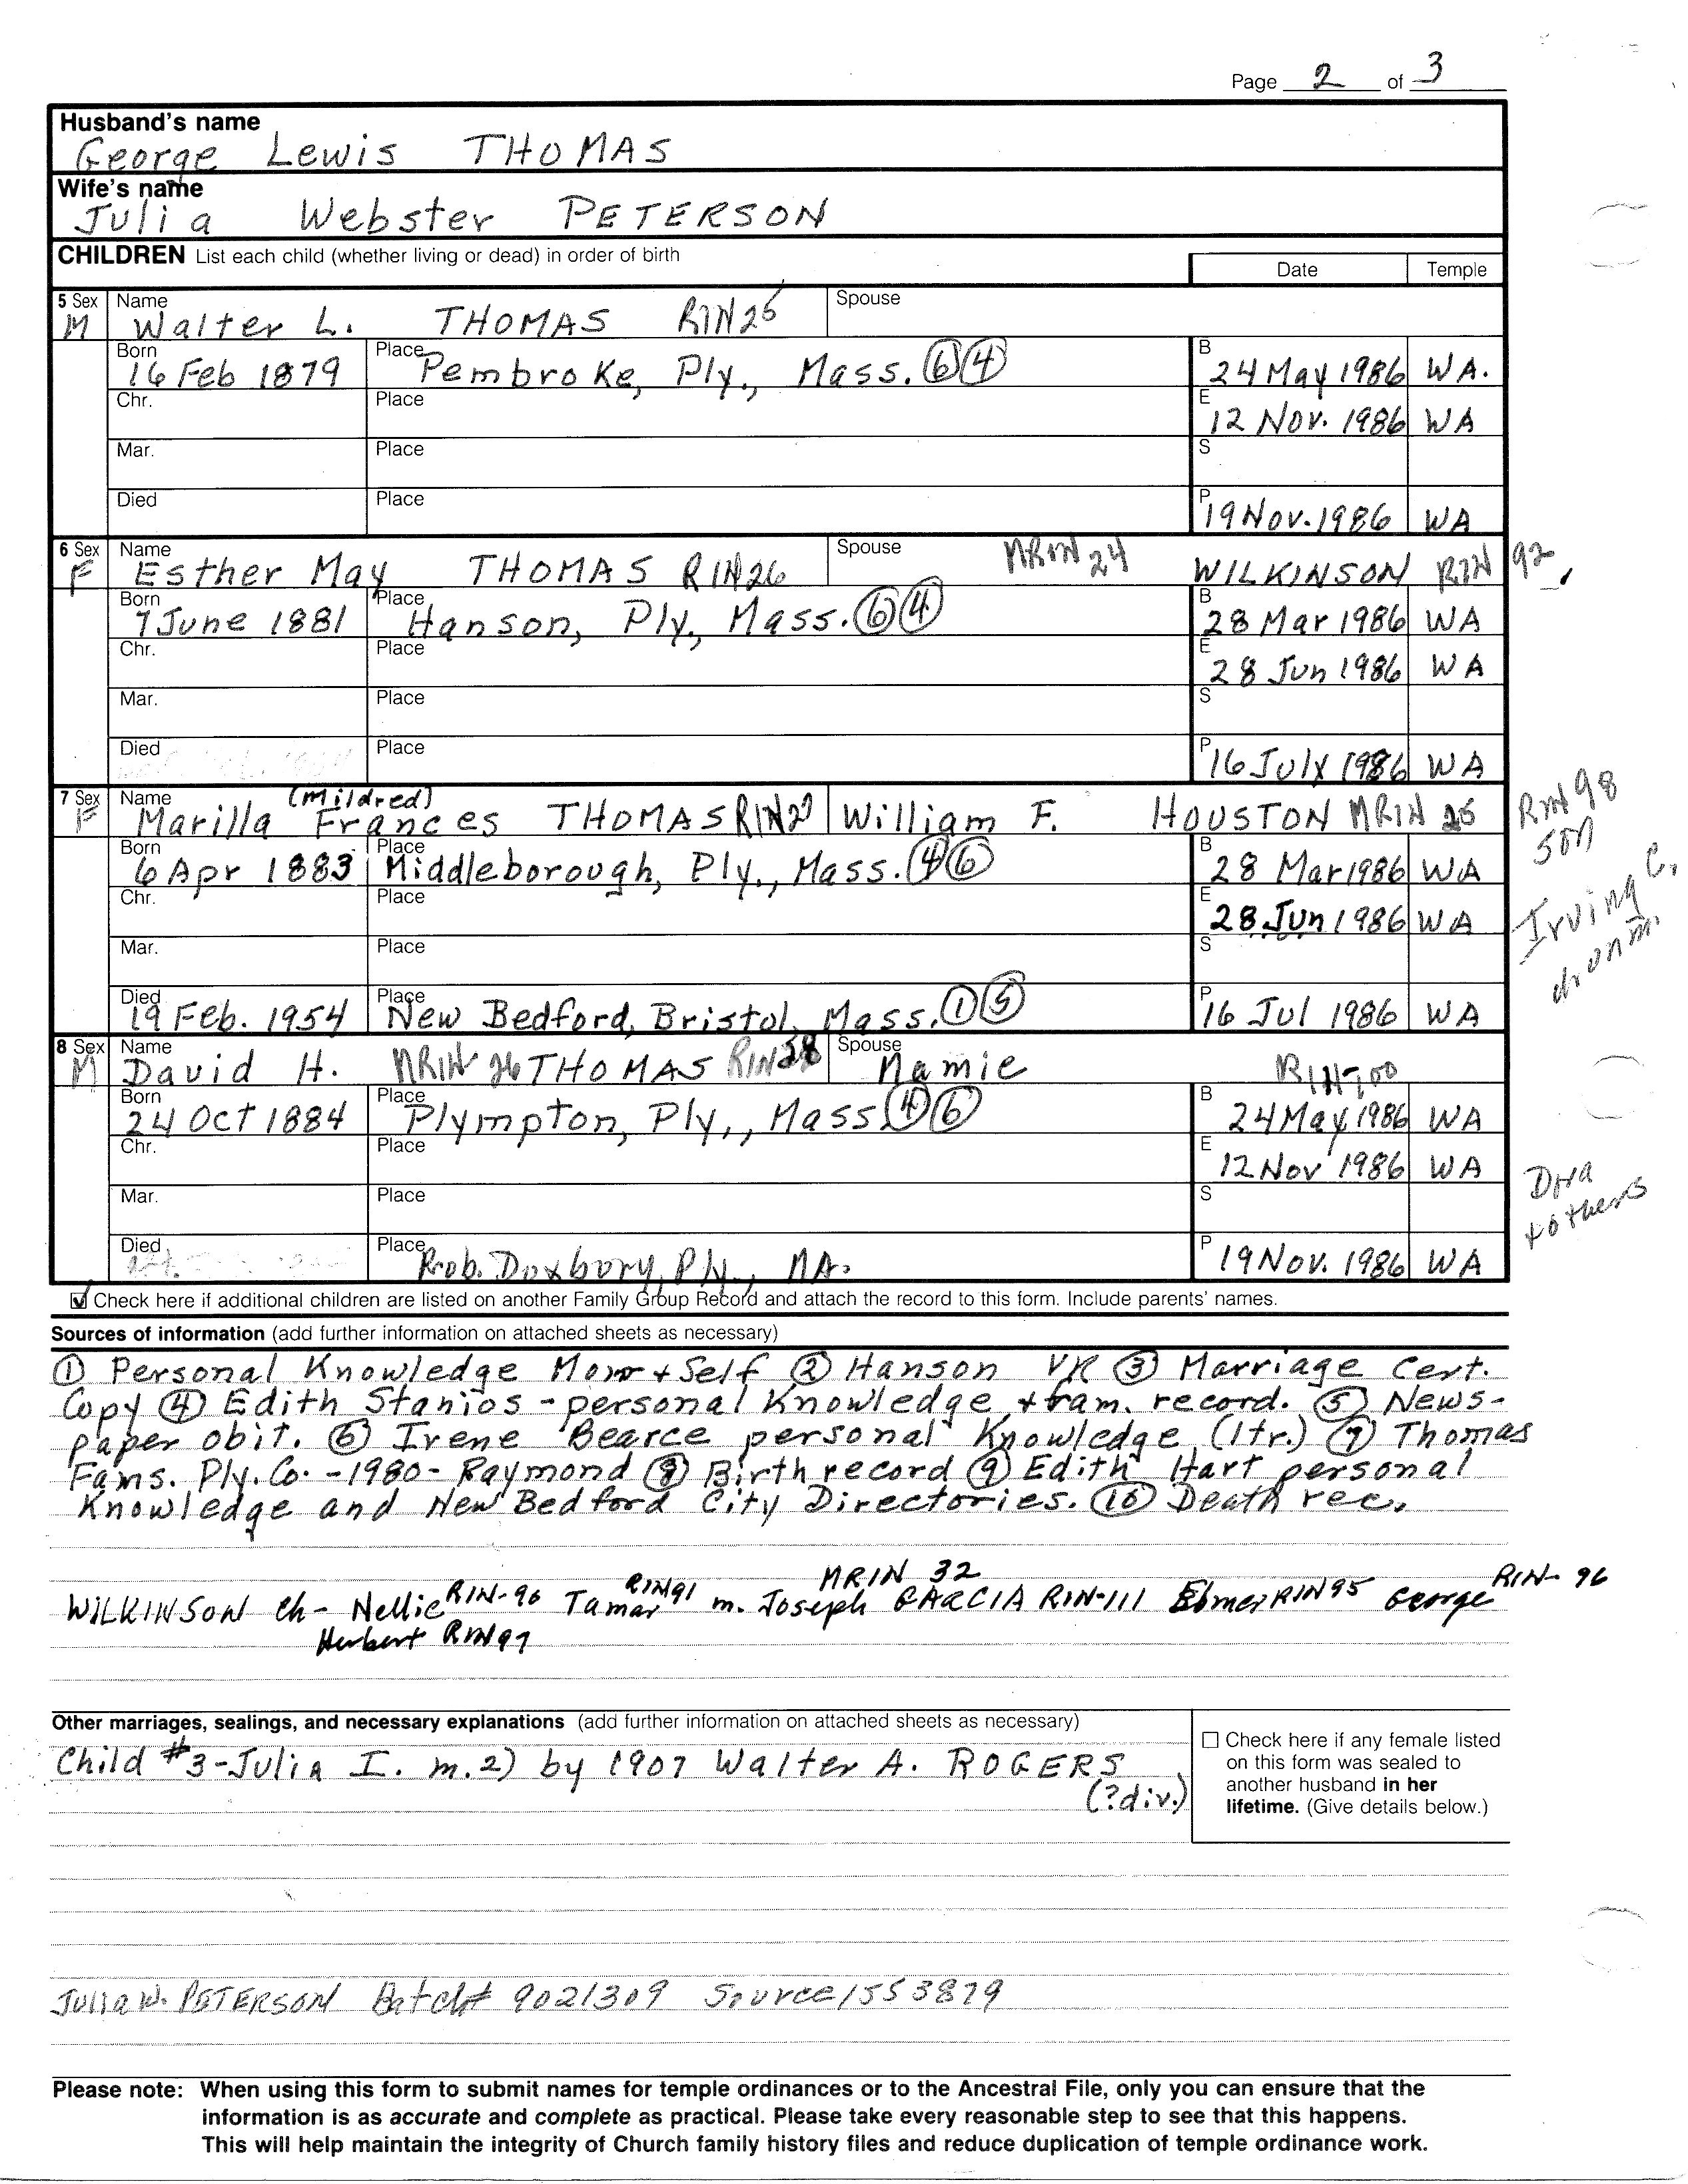 Page 2 of 3
Husband's name
George Lewis THOMAS
Wife's name
Julia Webster PETERSON
CHILDREN List each child (whether living or dead) in order of birth
Date Temple
5 Sex Name Spouse
M Walter L. THOMAS RIN25
Born Place B
16 Feb 1879 Pembroke, Ply., Mass. ⑥④ 24 May 1986 WA.
Chr. Place E
12 Nov. 1986 WA
Mar. Place S
Died Place P
19 Nov. 1986 WA
6 Sex Name Spouse
F Esther May THOMAS RIN26 MRIN 24 WILKINSON RIN 92
Born Place B
7 June 1881 Hanson, Ply., Mass. ⑥④ 28 Mar 1986 WA
Chr. Place E
28 Jun 1986 WA
Mar. Place S
Died Place P
16 July 1986 WA
7 Sex Name (Mildred)
F Marilla Frances THOMAS William F. HOUSTON MRIN 25 RIN 98
son
Irving C.
Born Place B
6 Apr 1883 Middleborough, Ply., Mass. ④⑥ 28 Mar 1986 WA
Chr. Place E
28 Jun 1986 WA
Mar. Place S
Died Place P
19 Feb. 1954 New Bedford, Bristol, Mass. ①⑤ 16 Jul 1986 WA
8 Sex Name Spouse
M David H. MRIN 26 THOMAS RIN28 Mamie RIN-100
Born Place B
24 Oct 1884 Plympton, Ply., Mass ④⑥ 24 May 1986 WA
Chr. Place E
12 Nov 1986 WA
Mar. Place S
Dora
+ others
Died Place P
Prob. Duxbury, Ply., MA. 19 Nov. 1986 WA
Check here if additional children are listed on another Family Group Record and attach the record to this form. Include parents' names.
Sources of information (add further information on attached sheets as necessary)
① Personal Knowledge Mom + Self ② Hanson VR ③ Marriage Cert.
Copy ④ Edith Stanios - personal Knowledge + fam. record. ⑤ News-
paper obit. ⑥ Irene Bearce personal Knowledge (ltr.) ⑦ Thomas
Fams. Ply. Co. -1980- Raymond ⑧ Birth record ⑨ Edith Hart personal
Knowledge and New Bedford City Directories. ⑩ Death rec.
MRIN 32
WILKINSON ch- Nellie RIN-90 Tamar RIN91 m. Joseph GARCIA RIN-111 Elmer RIN95 George RIN-96
Herbert RIN97
Other marriages, sealings, and necessary explanations (add further information on attached sheets as necessary)
Child #3-Julia I. m.2) by 1907 Walter A. ROGERS
(?div.)
Check here if any female listed
on this form was sealed to
another husband in her
lifetime. (Give details below.)
Julia W. PETERSON Batch# 9021309 Source 1553879
Please note: When using this form to submit names for temple ordinances or to the Ancestral File, only you can ensure that the
information is as accurate and complete as practical. Please take every reasonable step to see that this happens.
This will help maintain the integrity of Church family history files and reduce duplication of temple ordinance work.